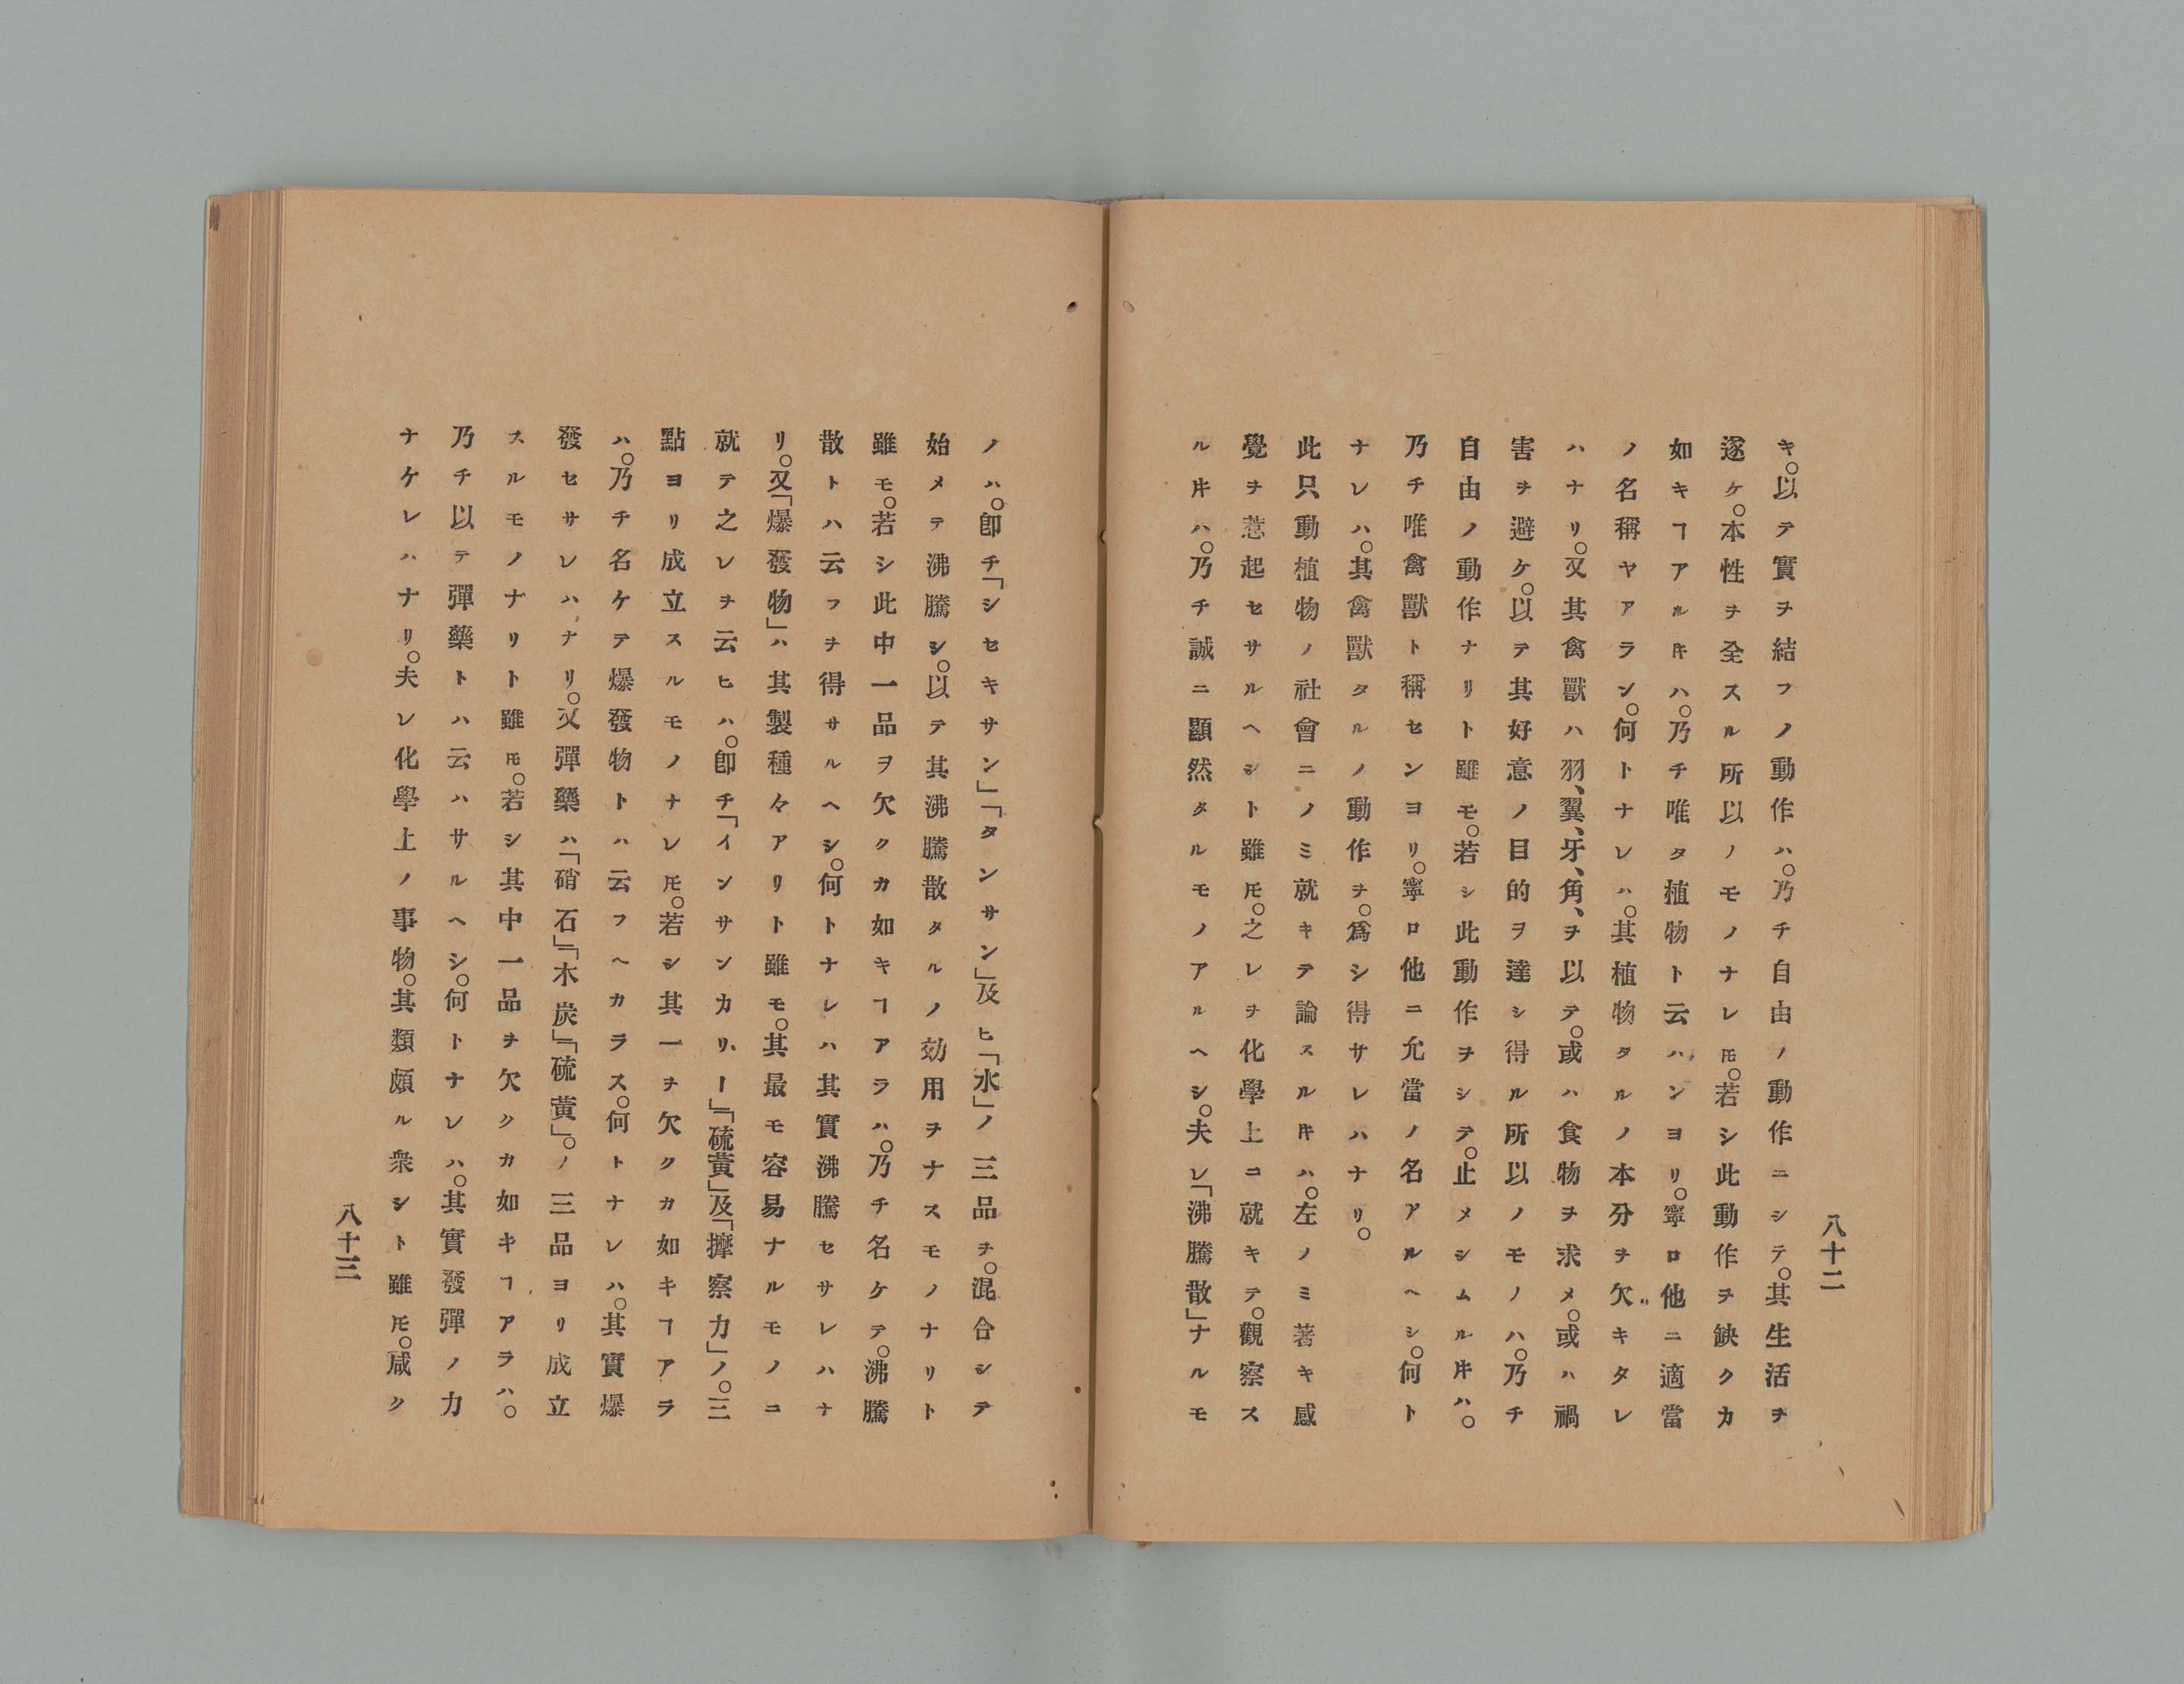 八十二
キ。以テ實ヲ結フノ動作ハ。乃チ自由ノ動作ニシテ。其生活ヲ
遂ケ。本性ヲ全スル所以ノモノナレ𪜈。若シ此動作ヲ缺クカ
如キヿアル𪜈ハ。乃チ唯タ植物ト云ハンヨリ。寧ロ他ニ適當
ノ名稱ヤアラン。何トナレハ。其植物タルノ本分ヲ欠キタレ
ハナリ。又其禽獸ハ羽、翼、牙、角、ヲ以テ。或ハ食物ヲ求メ。或ハ禍
害ヲ避ケ。以テ其好意ノ目的ヲ達シ得ル所以ノモノハ。乃チ
自由ノ動作ナリト雖モ。若シ此動作ヲシテ。止メシムル𪜈ハ。
乃チ唯禽獸ト稱センヨリ。寧ロ他ニ允當ノ名アルヘシ。何ト
ナレハ。其禽獸タルノ動作ヲ。爲シ得サレハナリ。
此只動植物ノ社會ニノミ就キテ論スル𪜈ハ。左ノミ著キ感
覺ヲ惹起セサルヘシト雖𪜈。之レヲ化學上ニ就キテ。觀察ス
ル𪜈ハ。乃チ誠ニ顯然タルモノアルヘシ。夫レ「沸騰散」ナルモ
ノハ。卽チ「シセキサン」「タンサン」及ヒ「水」ノ三品ヲ。混合シテ
始メテ沸騰シ。以テ其沸騰散タルノ効用ヲナスモノナリト
雖モ。若シ此中一品ヲ欠クカ如キヿアラハ。乃チ名ケテ。沸騰
散トハ云フヲ得サルヘシ。何トナレハ其實沸騰セサレハナ
リ。又「爆發物」ハ其製種々アリト雖モ。其最モ容易ナルモノニ
就テ之レヲ云ヒハ。卽チ「インサンカリー」「硫黃」及「摩察力」ノ。三
點ヨリ成立スルモノナレ𪜈。若シ其一ヲ欠クカ如キヿアラ
ハ。乃チ名ケテ爆發物トハ云フヘカラス。何トナレハ。其實爆
發セサレハナリ。又彈藥ハ「硝石」「木炭」「硫黃」。ノ三品ヨリ成立
スルモノナリト雖𪜈。若シ其中一品ヲ欠クカ如キヿアラハ。
乃チ以テ彈藥トハ云ハサルヘシ。何トナレハ。其實發彈ノ力
ナケレハナリ。夫レ化學上ノ事物。其類頗ル衆シト雖𪜈。咸ク
八十三